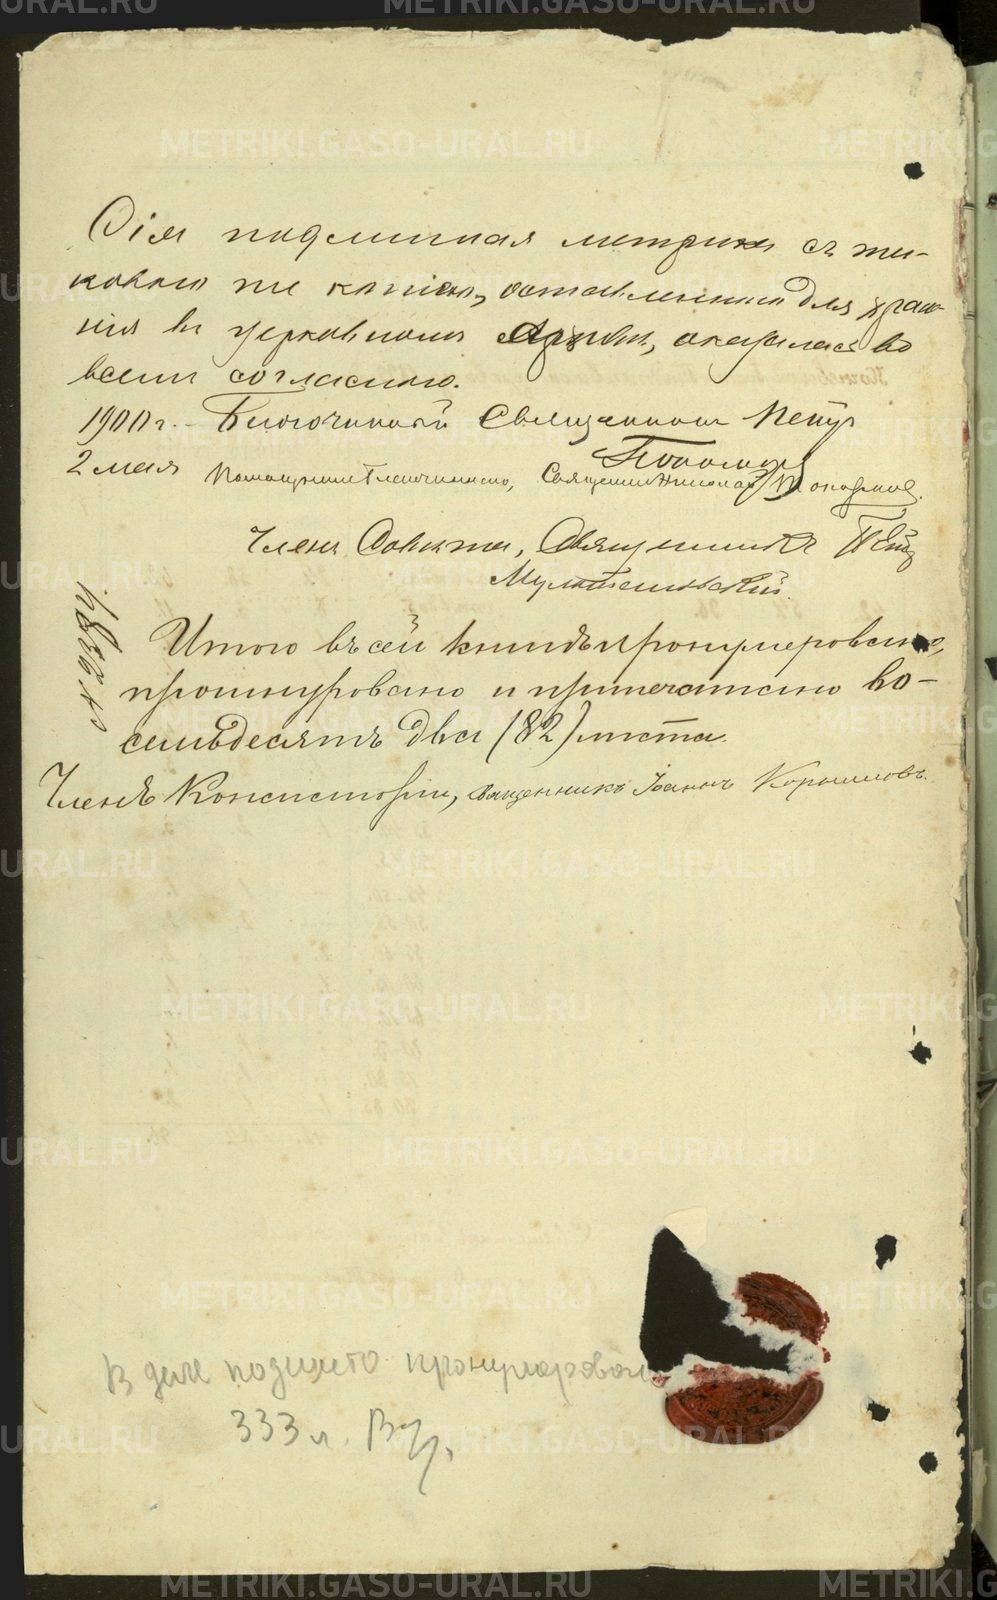 Сія подлинная метрика съ та-
ковою же копіею, оставленною для хране-
нія въ церковномъ Архивѣ, оказалась во
всемъ согласною.
1900 г. Благочинный Священникъ Петръ
Пономаревъ
2 мая Помощникъ Благочиннаго, Священникъ Николай
Членъ Совѣта, Священникъ Петръ
Итого въ сей книгѣ пронумеровано,
прошнуровано и припечатано во-
семьдесятъ два (82) листа.
Членъ Консисторіи, священникъ Іоаннъ
В деле подшито пронумеровано
333 л.
METRIKI.GASO-URAL.RU